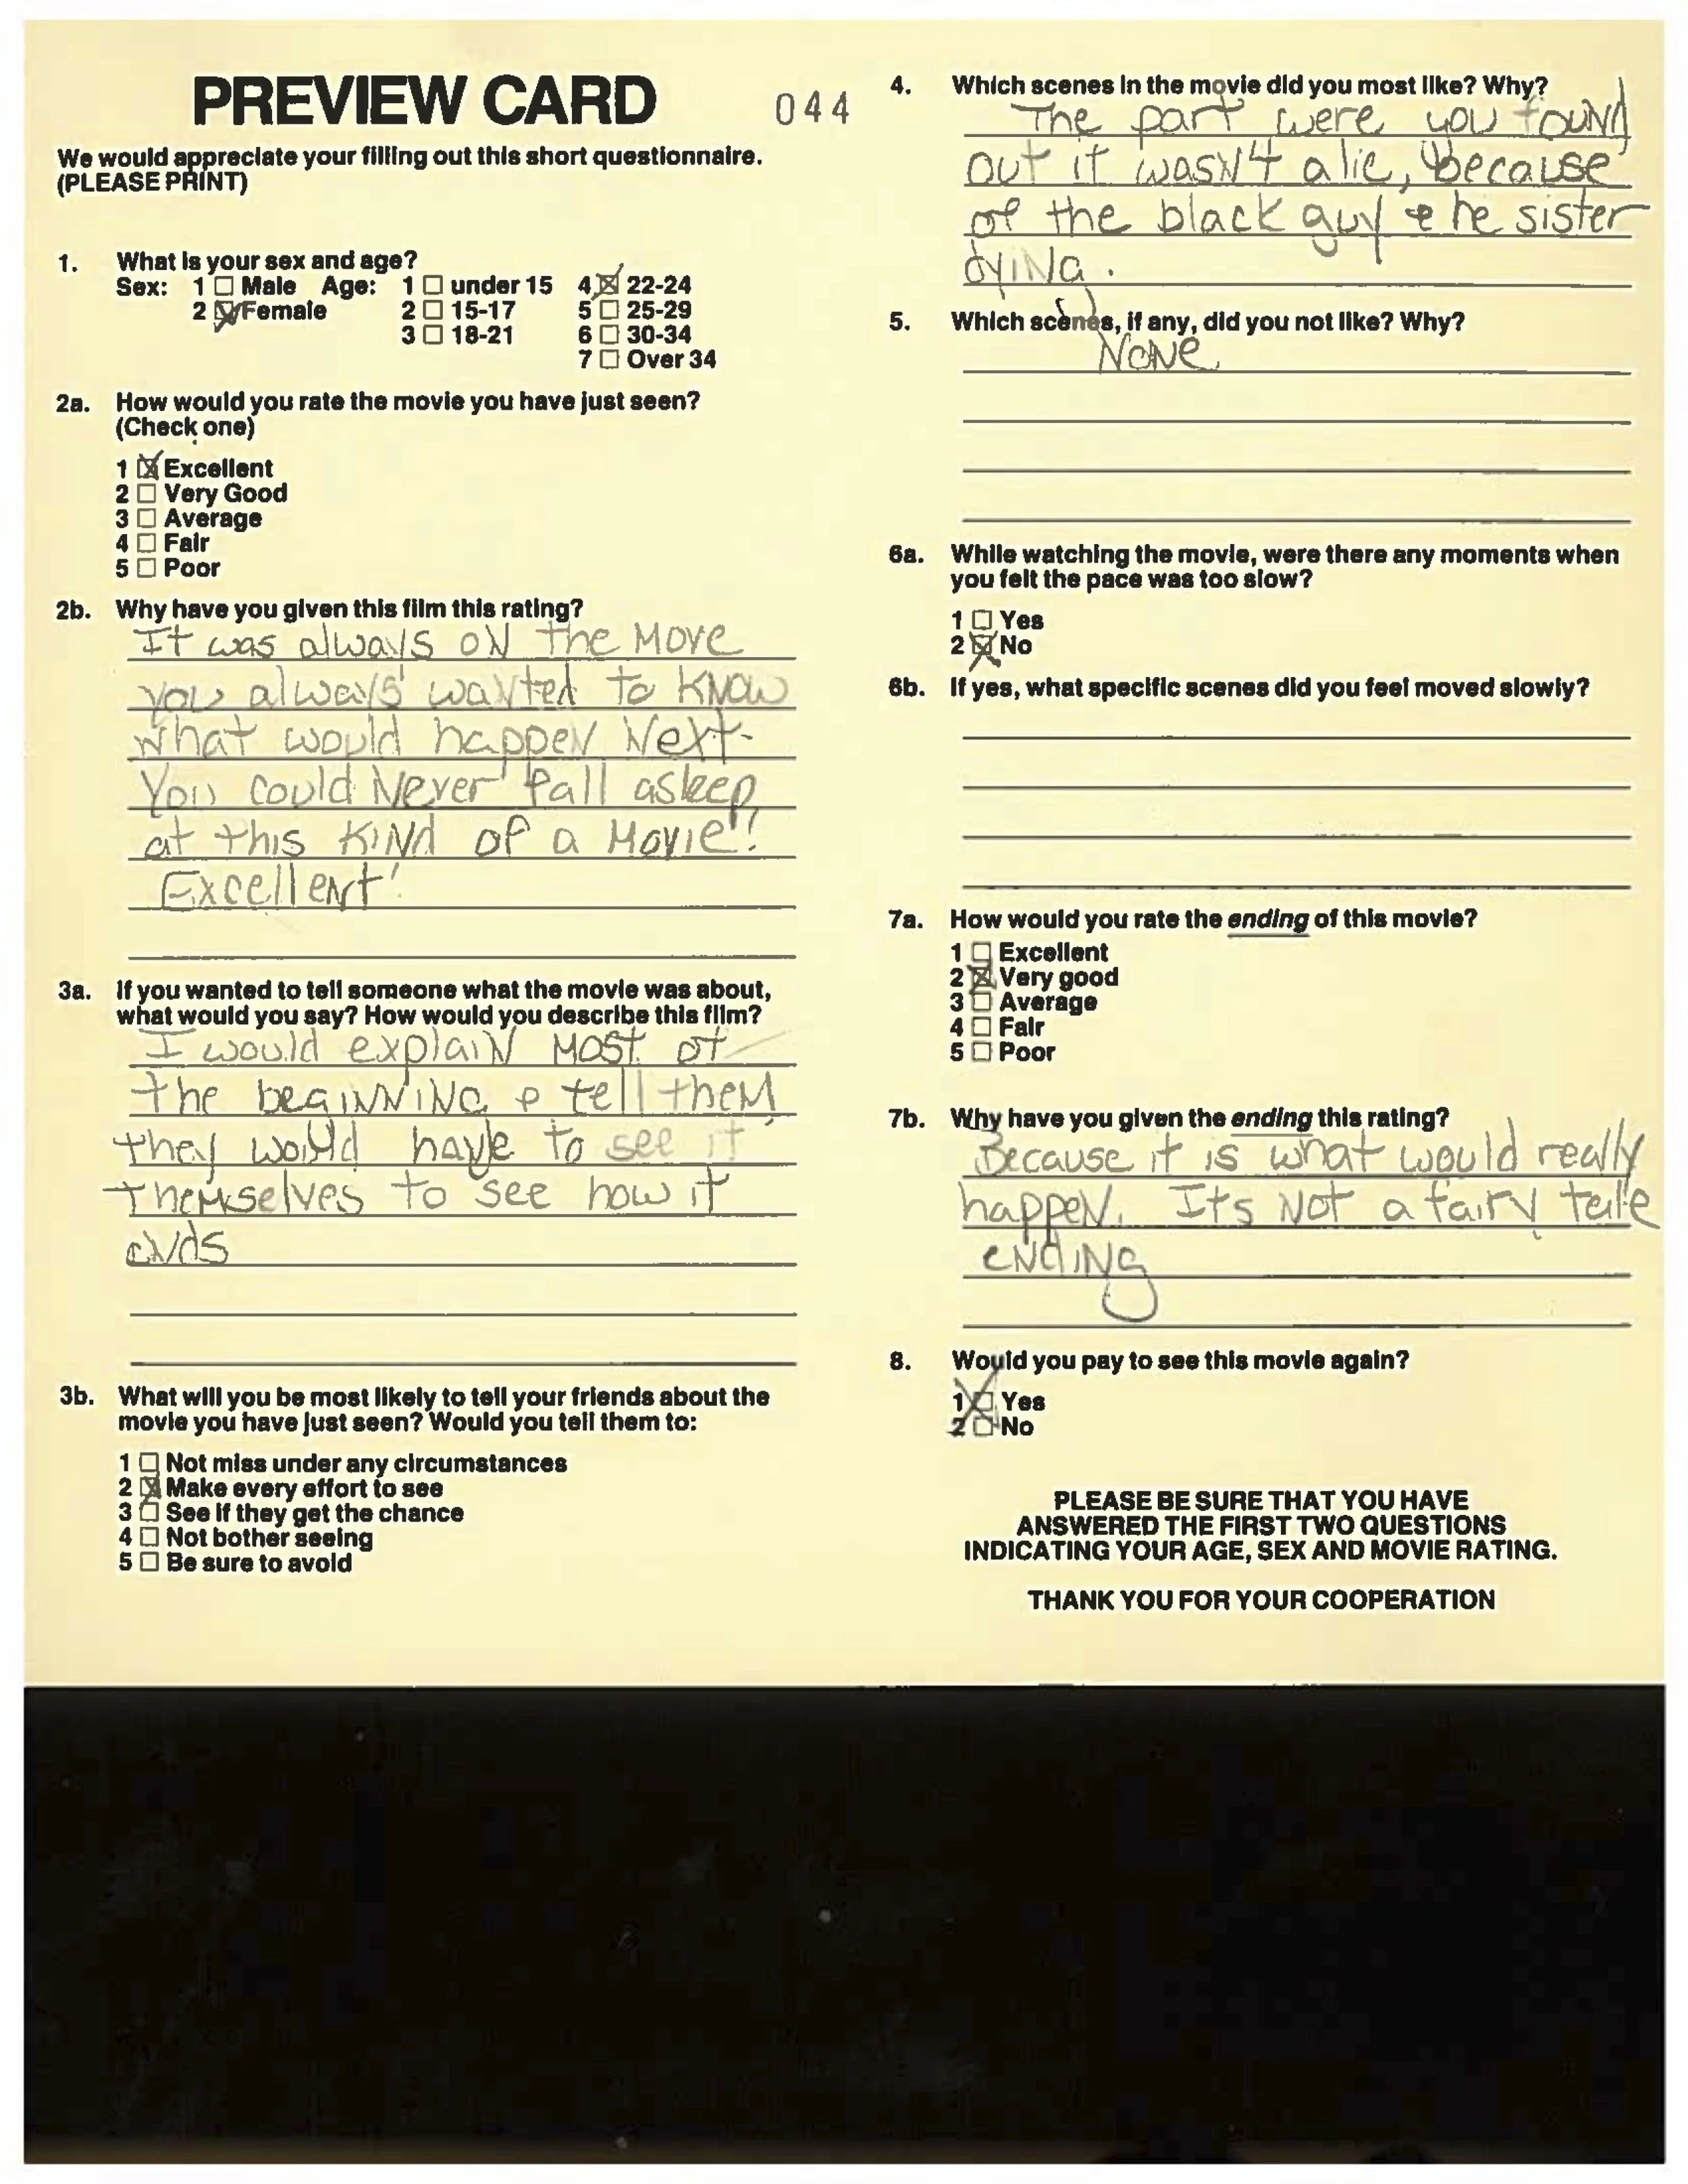 PREVIEW CARD
044
We would appreciate your filling out this short questionnaire.
(PLEASE PRINT)
1. What is your sex and age?
Sex: 1 ☐ Male Age: 1 ☐ under 15 4 ☒ 22-24
2 ☒ Female 2 ☐ 15-17 5 ☐ 25-29
3 ☐ 18-21 6 ☐ 30-34
7 ☐ Over 34
2a. How would you rate the movie you have just seen?
(Check one)
1 ☒ Excellent
2 ☐ Very Good
3 ☐ Average
4 ☐ Fair
5 ☐ Poor
2b. Why have you given this film this rating?
It was always on the move
you always wanted to know
what would happen next.
You could never fall asleep
at this kind of a movie!!
Excellent!
3a. If you wanted to tell someone what the movie was about,
what would you say? How would you describe this film?
I would explain most of
the beginning & tell them
they would have to see it
themselves to see how it
ends
3b. What will you be most likely to tell your friends about the
movie you have just seen? Would you tell them to:
1 ☐ Not miss under any circumstances
2 ☒ Make every effort to see
3 ☐ See if they get the chance
4 ☐ Not bother seeing
5 ☐ Be sure to avoid
4. Which scenes in the movie did you most like? Why?
The part were you found
out it wasn't a lie, because
of the black guy & he sister
dying.
5. Which scenes, if any, did you not like? Why?
None
6a. While watching the movie, were there any moments when
you felt the pace was too slow?
1 ☐ Yes
2 ☒ No
6b. If yes, what specific scenes did you feel moved slowly?
7a. How would you rate the ending of this movie?
1 ☐ Excellent
2 ☒ Very good
3 ☐ Average
4 ☐ Fair
5 ☐ Poor
7b. Why have you given the ending this rating?
Because it is what would really
happen. Its not a fairy tale
ending
8. Would you pay to see this movie again?
1 ☒ Yes
2 ☐ No
PLEASE BE SURE THAT YOU HAVE
ANSWERED THE FIRST TWO QUESTIONS
INDICATING YOUR AGE, SEX AND MOVIE RATING.
THANK YOU FOR YOUR COOPERATION